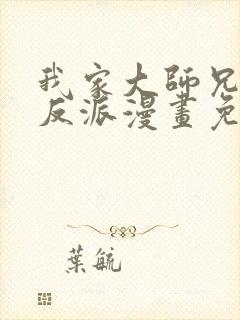 我家大師兄
反派漫畫免
葉毓